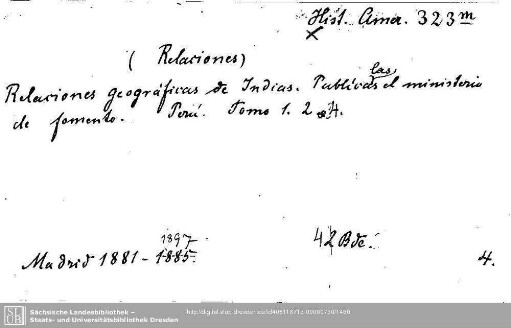 Hist. Amer. 323 m
(Relaciones)
Relaciones geográficas de Indias. Publícalas el ministerio
de fomento. Perú. Tomo 1. 2
1897
Madrid 1881 - 1885.
42 Bde.
4.
Sächsische Landesbibliothek –
Staats- und Universitätsbibliothek Dresden